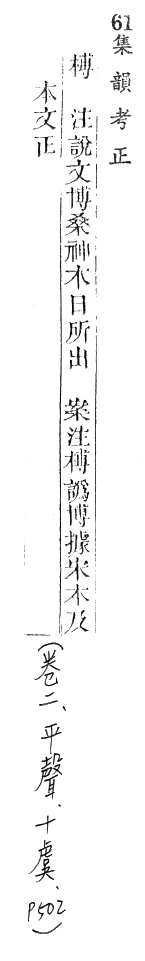 61集韻考正
榑 注說文博桑神木日所出 案注榑譌博據宋本及
本文正
(卷二、平聲、十虞、P502)